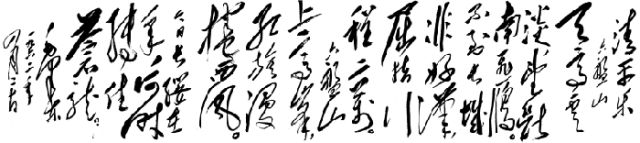 清平乐
六盘山
天高云
淡望断
南飞雁。
不到长城
非好汉，
屈指行
程二万。
六盘山
上高峰，
红旗漫
捲西风。
今日长缨在
手，何时
缚住
苍龙。
毛泽东
一九六一年